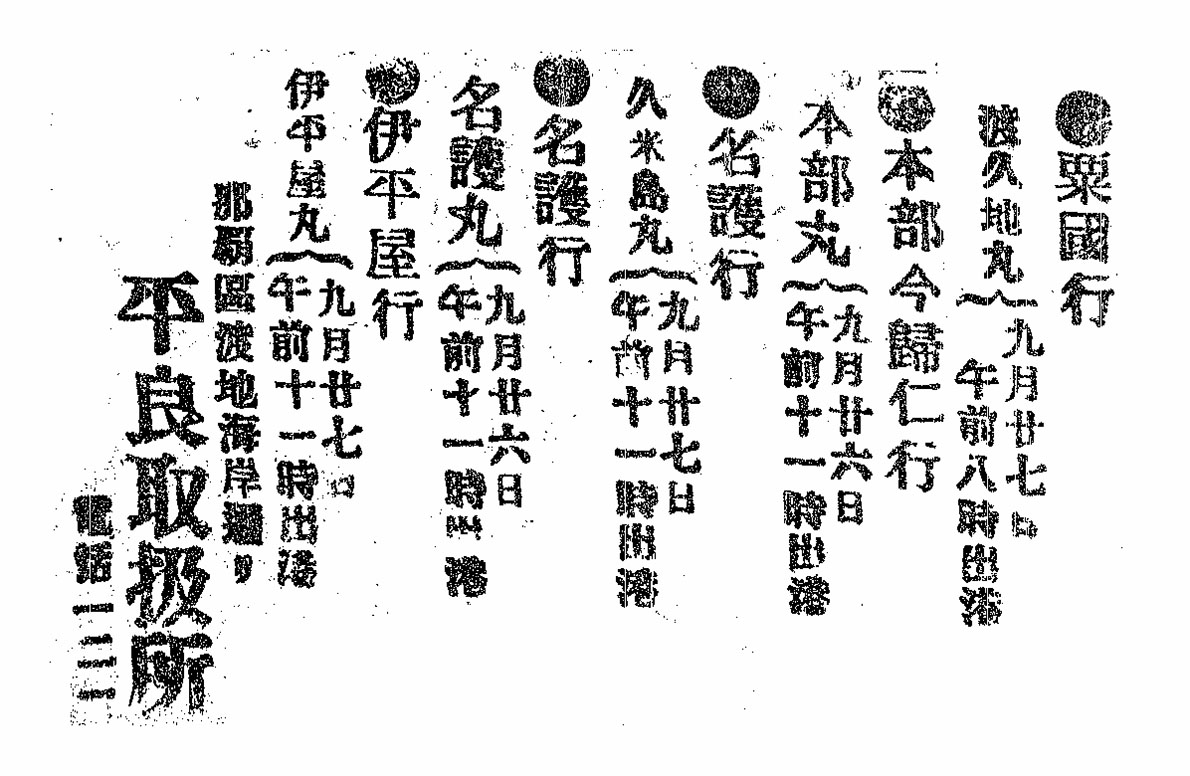 ●粟國行
渡久地丸{九月廿七日
午前八時出港
●本部今歸仁行
本部丸{九月廿六日
午前十一時出港
●名護行
久米島丸{九月廿七日
午前十一時出港
●名護行
名護丸{九月廿六日
午前十一時出港
●伊平屋行
伊平屋丸{九月廿七日
午前十一時出港
那覇區渡地海岸通り
平良取扱所
電話